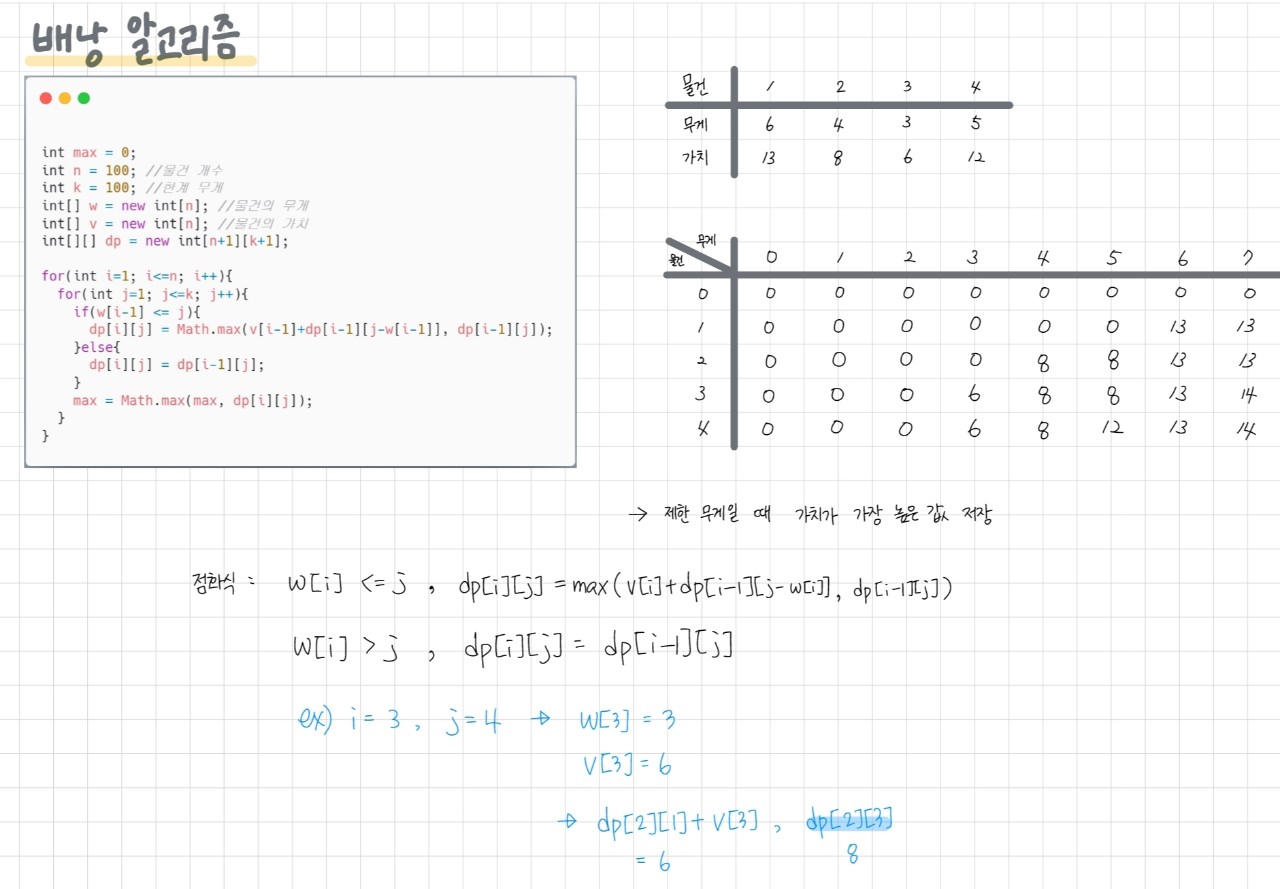 배낭 알고리즘
int max = 0;
int n = 100; //물건 개수
int k = 100; //한계 무게
int[] w = new int[n]; //물건의 무게
int[] v = new int[n]; //물건의 가치
int[][] dp = new int[n+1][k+1];
for(int i=1; i<=n; i++){
for(int j=1; j<=k; j++){
if(w[i-1] <= j){
dp[i][j] = Math.max(v[i-1]+dp[i-1][j-w[i-1]], dp[i-1][j]);
}else{
dp[i][j] = dp[i-1][j];
}
max = Math.max(max, dp[i][j]);
}
}
물건 1 2 3 4
무게 6 4 3 5
가치 13 8 6 12
무게
물건 0 1 2 3 4 5 6 7
0 0 0 0 0 0 0 0 0
1 0 0 0 0 0 0 13 13
2 0 0 0 0 8 8 13 13
3 0 0 0 6 8 8 13 14
4 0 0 0 6 8 12 13 14
→ 제한 무게일 때 가치가 가장 높은 값 저장
점화식 : w[i] <= j , dp[i][j] = max(v[i]+dp[i-1][j-w[i]], dp[i-1][j])
w[i] > j , dp[i][j] = dp[i-1][j]
ex) i = 3 , j = 4 → w[3] = 3
v[3] = 6
→ dp[2][1] + v[3] , dp[2][3]
= 6 8